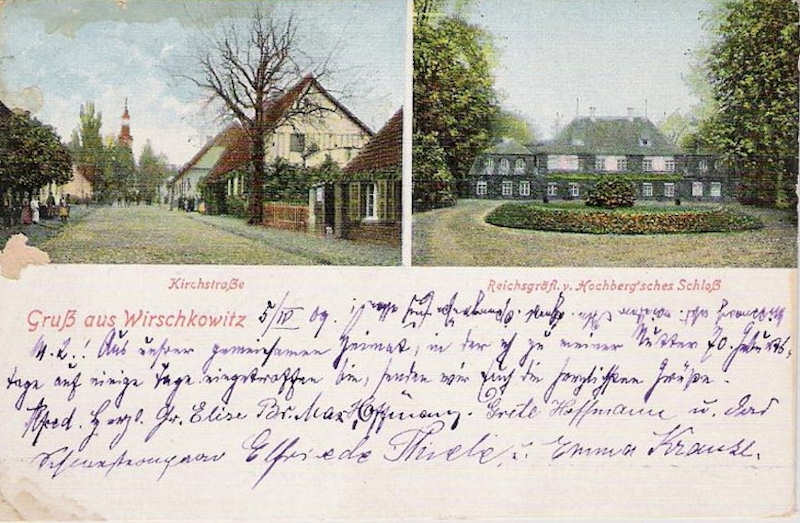 Kirchstraße
Reichsgräfl. v. Hochberg'sches Schloß
Gruß aus Wirschkowitz
5/IV 09.
M. L.! Aus unsrer gemeinsamen Heimat, in der ich zu meiner Mutter 70. Geburts-
tage auf einige Tage eingetroffen bin, senden wir Euch die herzlichsten Grüße.
Alfred. Herzl. Gr. Elise Br. Max Hoffmann. Grete Hoffmann u. das
Schwesternpaar Elfriede Thiele, u. Emma Krause.